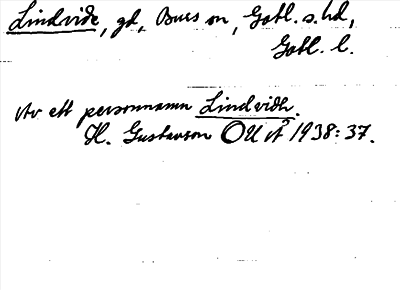 Lindvide, gd, Burs sn, Gotl. s. hd,
Gotl. l.
Av ett personnamn Lindvidh.
H. Gustavson OUÅ 1938: 37.